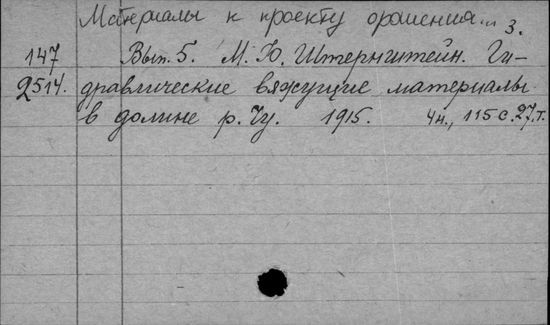 Материалы к проекту орошения... 3.
147 Вып. 5. М. Ю. Штернштейн. Ги-
2514. дравлические вяжущие материалы
в долине р. Чу. 1915. 4н., 115 с. 27,т.